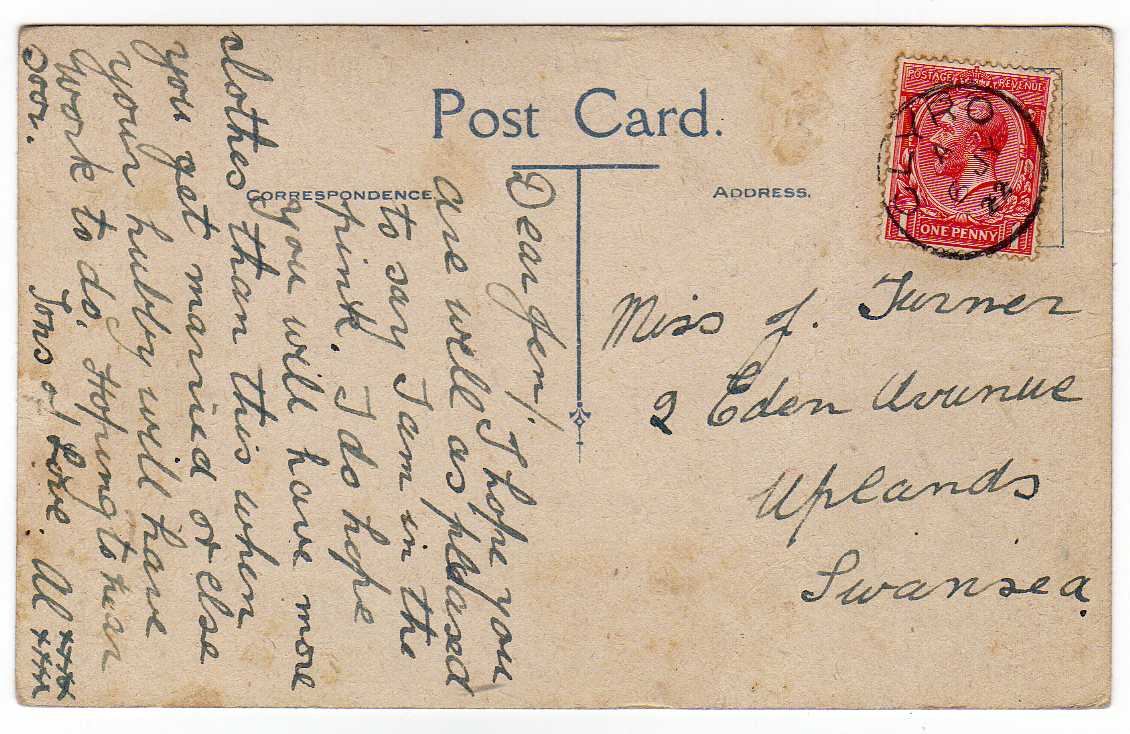 Post Card.
CORRESPONDENCE.
ADDRESS.
POSTAGE REVENUE
ONE PENNY
CLYRO
A
22
Dear Jen! I hope you
are well as pleased
to say I am in the
pink. I do hope
you will have more
clothes than this when
you get maried or else
your hubby will have
work to do. Hoping to hear
soon.
Tons of Love. Al xxxx
xxxx
Miss J. Turner
2 Eden Avenue
Uplands
Swansea.